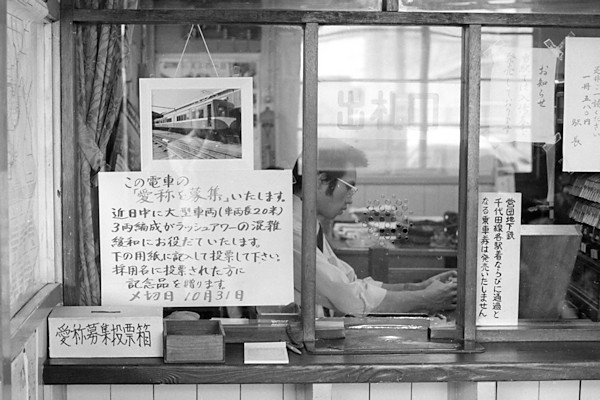 この電車の
「愛称を募集」いたします。
近日中に大型車両(車両長20米)
3両編成がラッシュアワーの混雑
緩和にお役だていたします。
下の用紙に記入して投票して下さい。
採用名に投票された方に
記念品を贈ります。
〆切日 10月31日
愛称募集投票箱
出札口
お知らせ
一冊 五八〇円
駅長
営団地下鉄
千代田線各駅着ならびに通過と
なる乗車券は発売いたしません